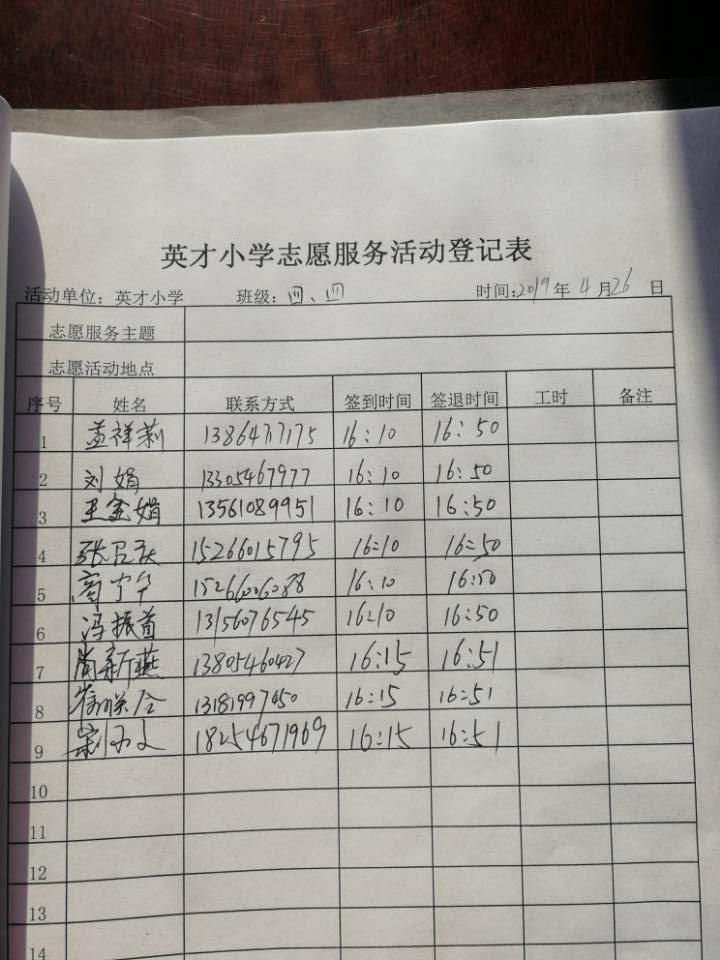 英才小学志愿服务活动登记表
活动单位：英才小学 班级：四、四 时间：2019年4月26日
志愿服务主题
志愿活动地点
序号 姓名 联系方式 签到时间 签退时间 工时 备注
1 孟祥莉 1386477175 16:10 16:50
2 刘娟 13305467977 16:10 16:50
3 王金娟 13561089951 16:10 16:50
4 15266015795 16:10 16:50
5 商宁华 15266006088 16:10 16:50
6 冯振首 13156076545 16:10 16:50
7 尚新燕 13805460427 16:15 16:51
8 13181997450 16:15 16:51
9 18254671969 16:15 16:51
10
11
12
13
14